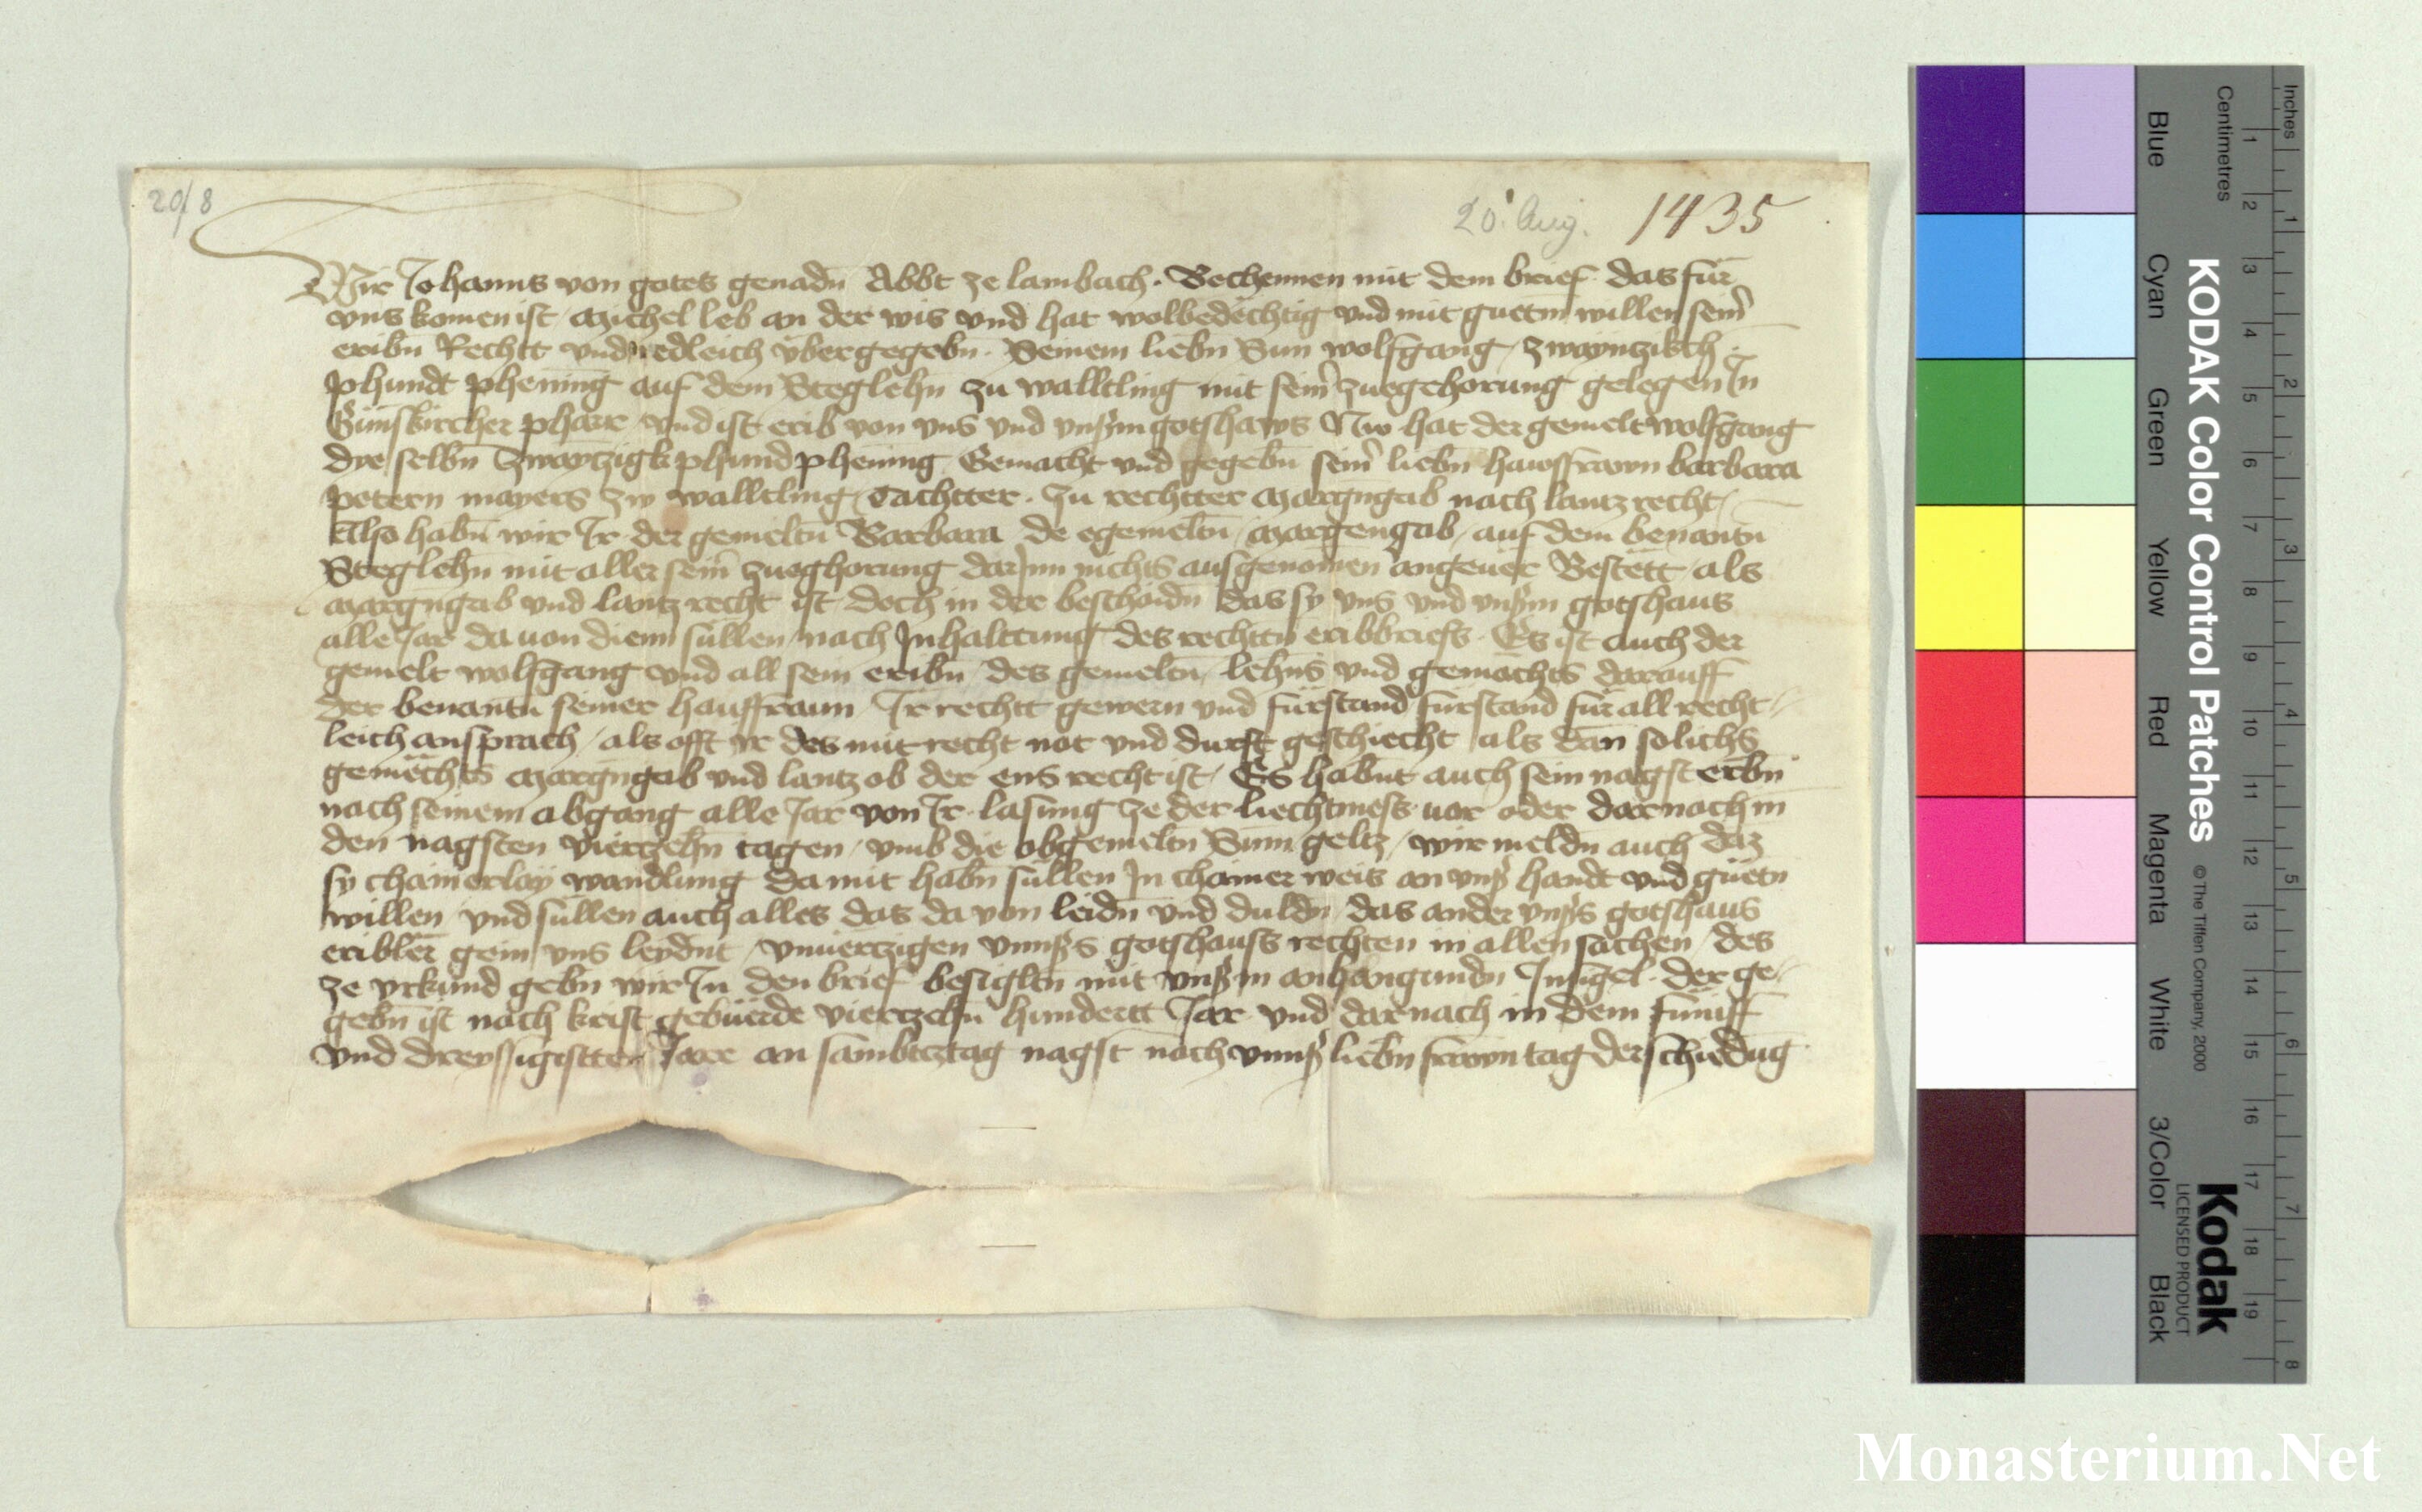 20/8
20. Aug. 1435
Wir Johanns von gotes genadn̄ Abbt ze lambach. Bechennen mit dem brief das für
vns komen ist Michel leb an der wis vnd hat wolbedechtig vnd mit guetm willen seinr̄
eribn̄ Rechtt vnd redleich übergegebn̄. Seinem liebn̄ Sun wolfgang zwayntzikch
phundt phening auf dem Steglehn̄ zu walltling mit seinr̄ zuegehorung gelegen Jn
Günskircher pharr vnd ist erib von vns vnd vnßm gotshaws Nw hat der gemelt wolfgang
dye selbn̄ Zwayntzigk phund phening Gemacht vnd gegebn̄ seinr̄ liebn̄ hawsfrawn barbara
petern mayers zw walltling tachtter. Zu rechtter Margngab nach lantz recht
Also habn̄ wir Jr der gemeltn̄ Barbara de egemeltn̄ Margengab auf dem benantn̄
Steglehn̄ mit aller seinr̄ zueghorung darjnn nichts ausgenomen angeuer Bestett als
Margngab vnd lantz recht ist doch in der beschaidn̄ das sy vns vnd vnßm gotshaus
alle Jar da uon dienn sullen nach Jnhalttung des rechttn̄ eribbriefs. Es ist auch der
gemelt wolfgang vnd all sein eribn̄ des gemeltn̄ lehns vnd gemachts darauff
der benantn̄ seiner hausfraun Jr rechtt gewern vnd fürstand fürstand für all recht
leich ansprach als offt jr des mit recht not vnd durft geschiecht als dan solichs
gemechts Margngab vnd lantz ob der ens recht ist Es habnt auch sein nagst eribn̄
nach seinem abgang alle Jar von Jr lasung ze der liechtmess uor oder dar nach in
den nagsten viertzehn̄ tagen vmb die obgemeltn̄ Sum geltz wir meldn̄ auch daz
sy chainerlay wandlung da mit habn̄ sullen Jn chainer weis an vnßr handt vnd güetn̄
willen vnd sullen auch alles das da von leidn̄ vnd duldn̄ das ander vnßs gotshaus
eriblet gein vns leydnt vnuertzigen vnnßs gotshauss rechten in allen sachen des
ze vrkund gebn̄ wir Jn den brief besigltn̄ mit vnßm anhangundn̄ Jnsigel. der ge
gebn̄ ist nach krist gebüerde viertzehn̄ hundertt Jar vnd darnach in dem fünff
vnd dreyssigistten Jare an sambtztag nagst nach vnnßr liebn̄ frawn tag der schiedūg
KODAK Color Control Patches © The Tiffen Company, 2000
Kodak
LICENSED PRODUCT
Inches 1 2 3 4 5 6 7 8
Centimetres 1 2 3 4 5 6 7 8 9 10 11 12 13 14 15 16 17 18 19
Blue
Cyan
Green
Yellow
Red
Magenta
White
3/Color
Black
Monasterium.Net